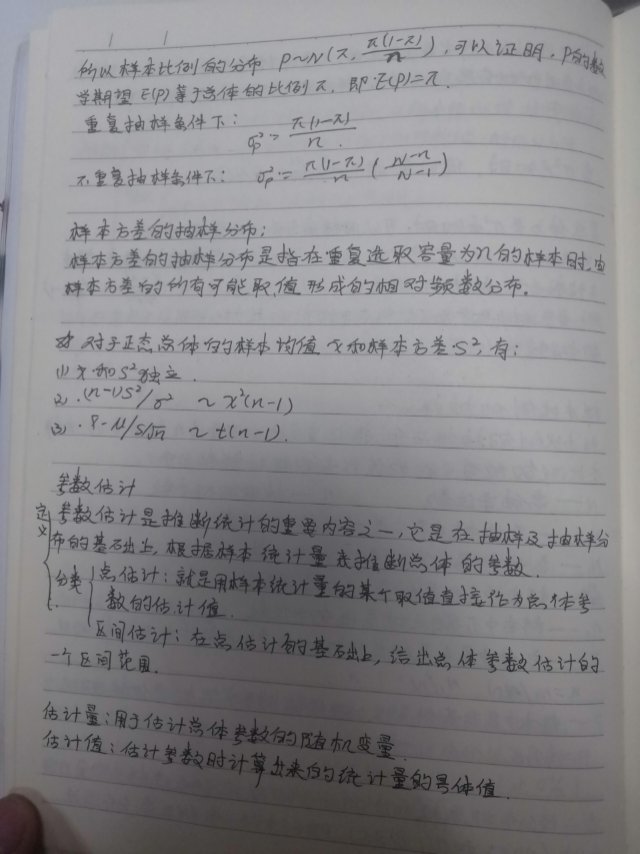 所以样本比例的分布 P~N(π, π(1-π)/n), 可以证明, P的数
学期望 E(P) 等于总体的比例π, 即 E(P)=π.
重复抽样条件下: σ²p = π(1-π)/n.
不重复抽样条件下: σ²p = π(1-π)/n (N-n/N-1)
样本方差的抽样分布:
样本方差的抽样分布是指在重复选取容量为n的样本时,由
样本方差的所有可能取值形成的相对频数分布.
对于正态总体的样本均值 x和样本方差S²,有:
(1) x和S²独立.
(2). (n-1)S²/σ² ~ χ²(n-1)
(3) . x-μ/s/√n ~ t(n-1).
参数估计
定义 参数估计是推断统计的重要内容之一,它是在抽样及抽样分
布的基础上,根据样本统计量来推断总体的参数.
分类 点估计: 就是用样本统计量的某个取值直接作为总体参
数的估计值.
区间估计: 在点估计的基础上, 给出总体参数估计的
一个区间范围.
估计量:用于估计总体参数的随机变量.
估计值:估计参数时计算出来的统计量的具体值.